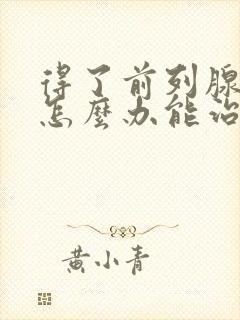 得了前列腺
怎麼办能治
黄小青